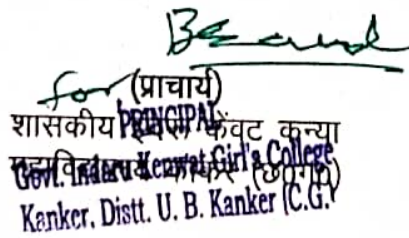 for (प्राचार्य)
PRINCIPAL
शासकीय केंवट कन्या
Govt. Indaru Kenwat Girl's College
Kanker, Distt. U. B. Kanker (C.G.)